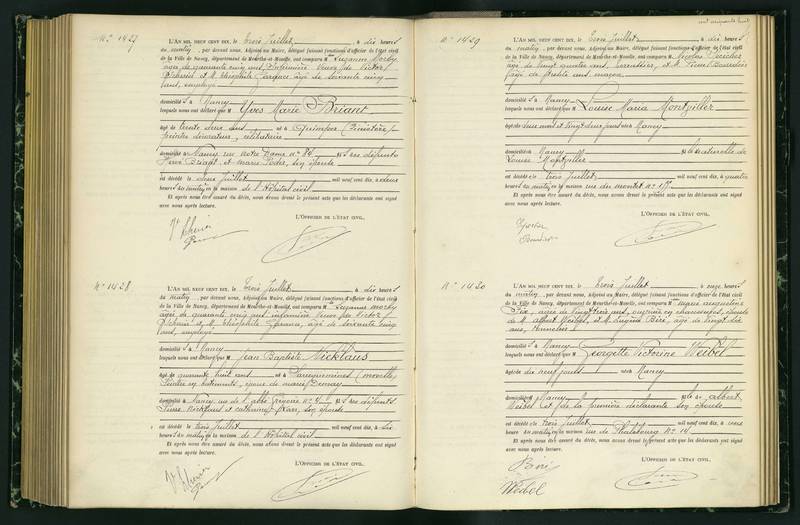 N° 1427
L'AN MIL NEUF CENT DIX, le trois Juillet, à dix heures
du matin, par devant nous, Adjoint au Maire, délégué faisant fonctions d'officier de l'état civil
de la Ville de Nancy, département de Meurthe-et-Moselle, ont comparu M Suzanne
âgée de quarante cinq ans, infirmière, veuve de Victor
et M. Théophile âgé de soixante cinq
ans, employé
domiciliés à Nancy
lesquels nous ont déclaré que M Yves Marie Briant
âgé de trente deux ans né à Quimper (Finistère)
peintre décorateur, célibataire
domicilié à Nancy, rue Notre Dame n° 86, fils des défunts
Yves Briant et Marie son épouse
est décédé le deux Juillet mil neuf cent dix, à deux
heures du matin en la maison de l'hôpital civil
Et après nous être assuré du décès, nous avons dressé le présent acte que les déclarants ont signé
avec nous après lecture.
L'OFFICIER DE L'ÉTAT CIVIL,
N° 1428
L'AN MIL NEUF CENT DIX, le trois Juillet, à dix heures
du matin, par devant nous, Adjoint au Maire, délégué faisant fonctions d'officier de l'état civil
de la Ville de Nancy, département de Meurthe-et-Moselle, ont comparu M Suzanne
âgée de quarante cinq ans infirmière veuve de Victor
et M. Théophile âgé de soixante cinq
ans, employé
domiciliés à Nancy
lesquels nous ont déclaré que M Jean Baptiste Nicklaus
âgé de quarante huit ans né à Sarreguemines (Moselle)
peintre en bâtiments, époux de Marie
domicilié à Nancy, rue de l'abbé Grégoire n° 4, fils des défunts
Pierre Nicklaus et Catherine son épouse
est décédé le trois Juillet mil neuf cent dix, à six
heures du matin en la maison de l'hôpital civil
Et après nous être assuré du décès, nous avons dressé le présent acte que les déclarants ont signé
avec nous après lecture.
L'OFFICIER DE L'ÉTAT CIVIL,
cent cinquante huit
N° 1429
L'AN MIL NEUF CENT DIX, le trois Juillet, à dix heures
du matin, par devant nous, Adjoint au Maire, délégué faisant fonctions d'officier de l'état civil
de la Ville de Nancy, département de Meurthe-et-Moselle, ont comparu M Nicolas
âgé de vingt quatre ans, et M. Pierre
âgé de trente ans, maçon
domiciliés à Nancy
lesquels nous ont déclaré que M Louise Maria Montpiller
âgée de deux mois et vingt deux jours née à Nancy
domiciliée à Nancy fille naturelle de
Louise Montpiller
est décédée le trois Juillet mil neuf cent dix, à quatre
heures du matin en la maison rue du Montet n° 177
Et après nous être assuré du décès, nous avons dressé le présent acte que les déclarants ont signé
avec nous après lecture.
L'OFFICIER DE L'ÉTAT CIVIL,
N° 1430
L'AN MIL NEUF CENT DIX, le trois Juillet, à onze heures
du matin, par devant nous, Adjoint au Maire, délégué faisant fonctions d'officier de l'état civil
de la Ville de Nancy, département de Meurthe-et-Moselle, ont comparu M Marie Augustine
âgée de vingt trois ans, ouvrière en chaussures, épouse
de M. Albert Weibel, et M. Eugène Béré, âgé de vingt six
ans,
domiciliés à Nancy
lesquels nous ont déclaré que M Georgette Victorine Weibel
âgée de dix neuf jours née à Nancy
domiciliée à Nancy fille de Albert
Weibel et de la première déclarante son épouse
est décédée le trois Juillet mil neuf cent dix, à onze
heures du matin en la maison rue de Phalsbourg n° 14
Et après nous être assuré du décès, nous avons dressé le présent acte que les déclarants ont signé
avec nous après lecture.
L'OFFICIER DE L'ÉTAT CIVIL,
Weibel